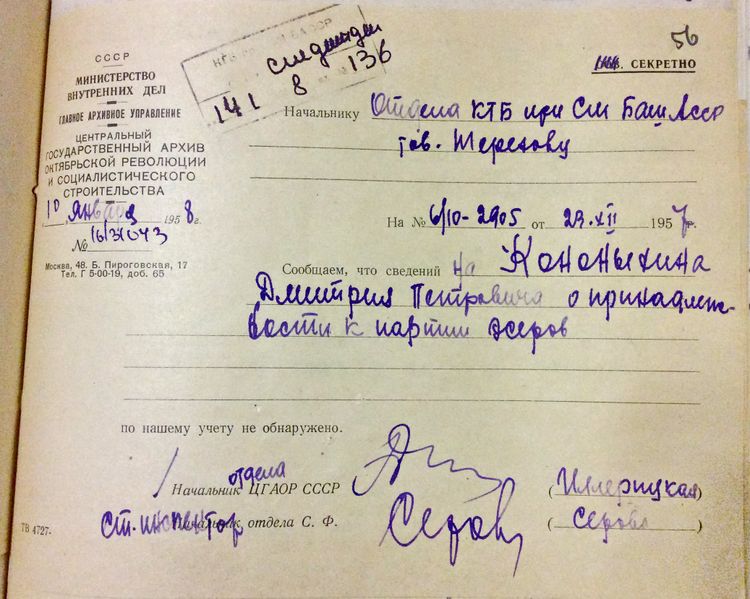 56
СЕКРЕТНО
КГБ
следотдел
141 8 136
СССР
МИНИСТЕРСТВО
ВНУТРЕННИХ ДЕЛ
ГЛАВНОЕ АРХИВНОЕ УПРАВЛЕНИЕ
ЦЕНТРАЛЬНЫЙ
ГОСУДАРСТВЕННЫЙ АРХИВ
ОКТЯБРЬСКОЙ РЕВОЛЮЦИИ
И СОЦИАЛИСТИЧЕСКОГО
СТРОИТЕЛЬСТВА
10 января 1958 г.
№
Москва, 48. Б. Пироговская, 17
Тел. Г 5-00-19, доб. 65
Начальнику Отдела КГБ при См Баш Асср
тов.
На № 6/10-2905 от 23.XII 1957 г.
Сообщаем, что сведений на Кононыхина
Дмитрия Петровича о принадлеж-
ности к партии эсеров
по нашему учету не обнаружено.
Начальник отдела ЦГАОР СССР
ст. инспектор
Начальник отдела С. Ф.
(Имерицкая)
(Серова)
ТВ 4727-